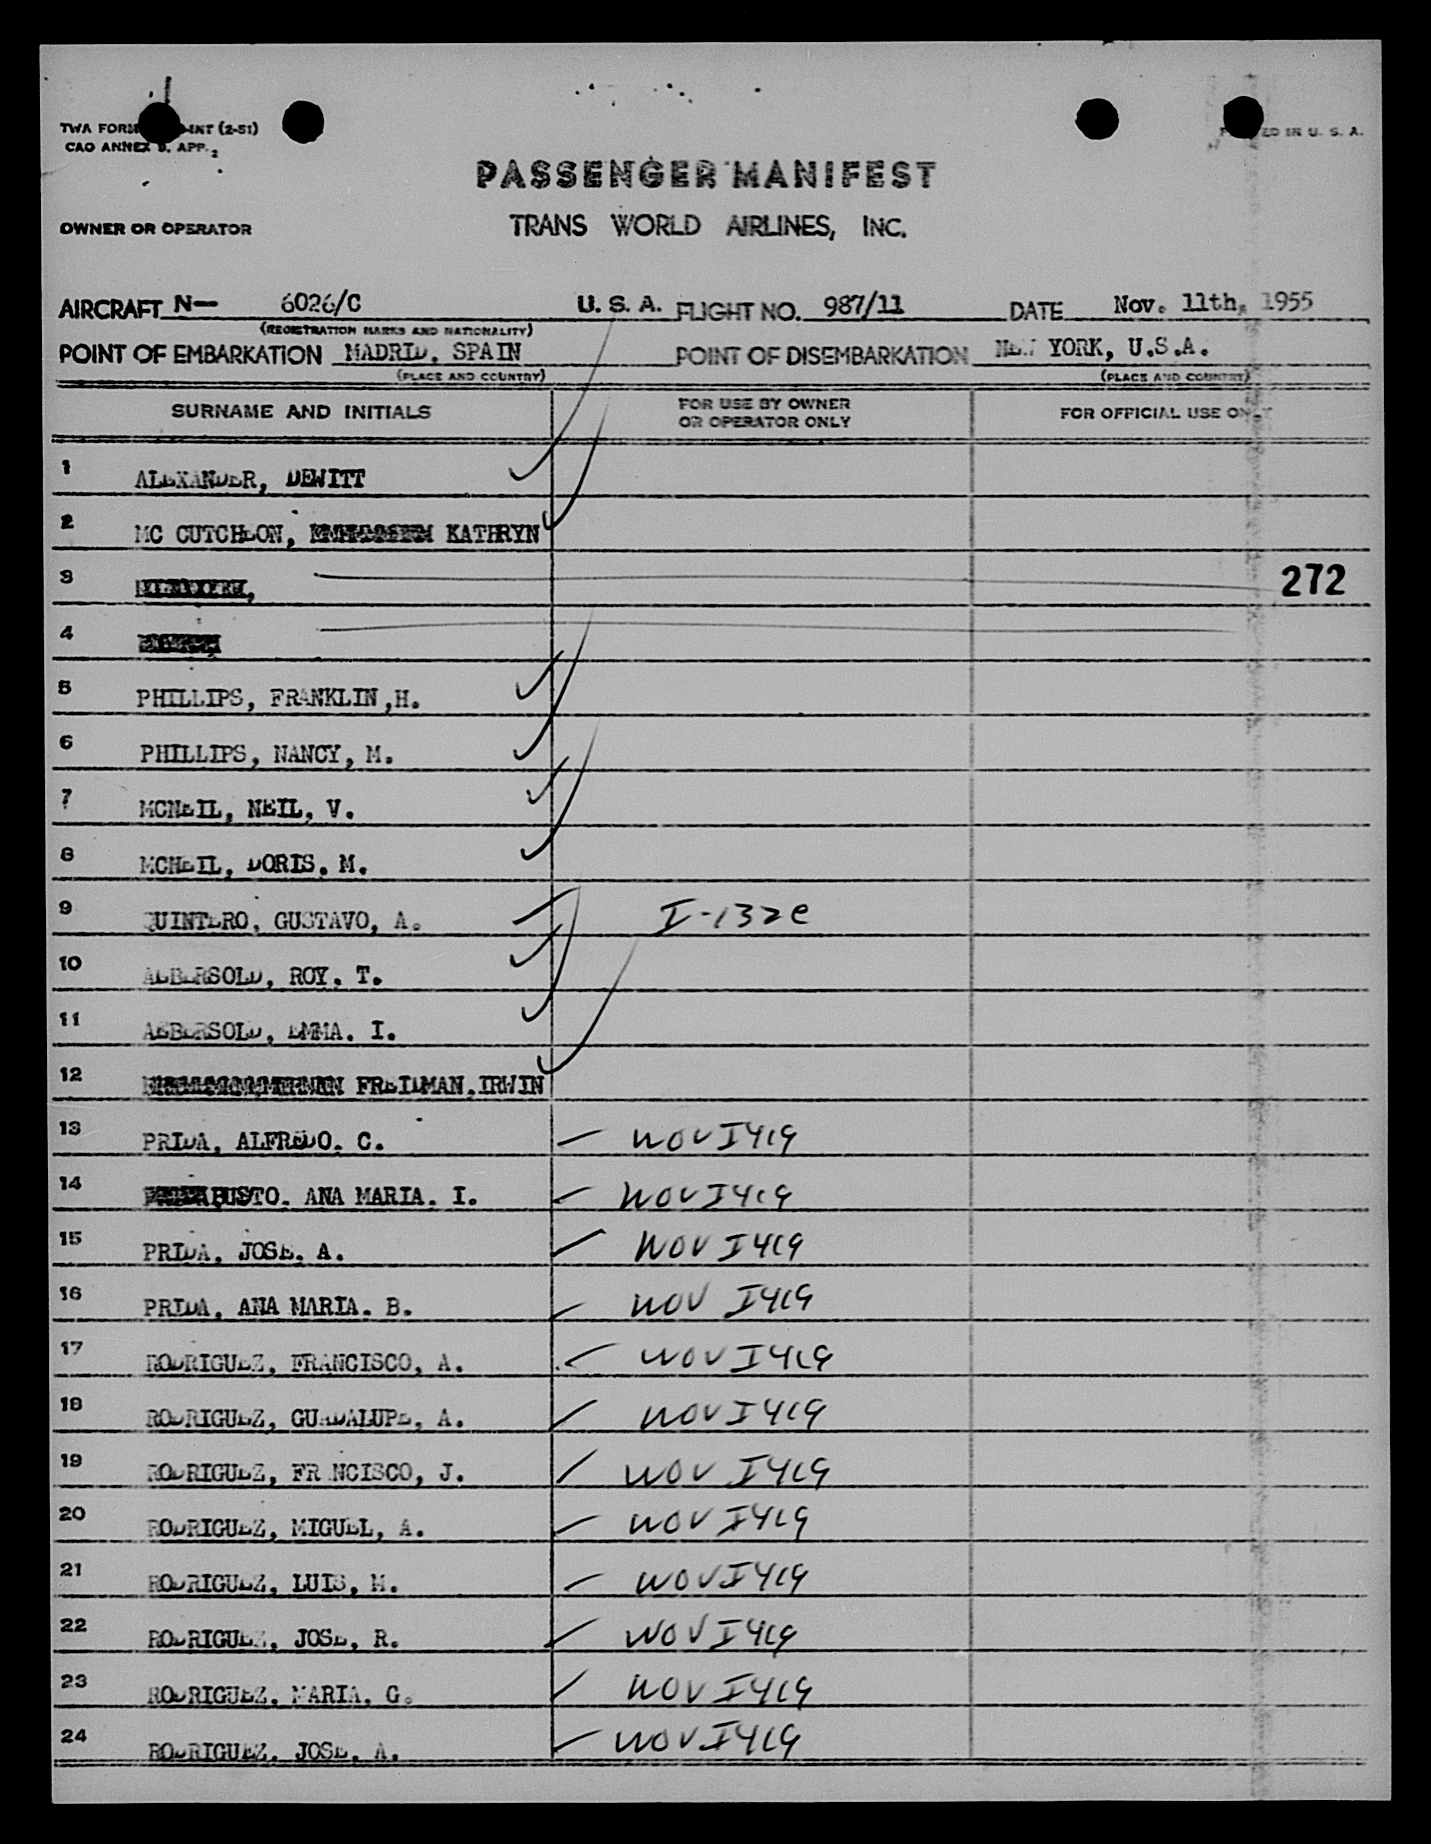 TWA FORM INT (2-51)
CAO ANNEX 9, APP. 2
PRINTED IN U. S. A.
PASSENGER MANIFEST
OWNER OR OPERATOR
TRANS WORLD AIRLINES, INC.
AIRCRAFT N— 6026/C U. S. A. FLIGHT NO. 987/11 DATE Nov. 11th, 1955
(REGISTRATION MARKS AND NATIONALITY)
POINT OF EMBARKATION MADRID, SPAIN POINT OF DISEMBARKATION NEW YORK, U.S.A.
(PLACE AND COUNTRY) (PLACE AND COUNTRY)
SURNAME AND INITIALS FOR USE BY OWNER OR OPERATOR ONLY FOR OFFICIAL USE ONLY
1 ALEXANDER, DEWITT
2 MC CUTCHEON, KATHRYN
3 272
4
5 PHILLIPS, FRANKLIN,H.
6 PHILLIPS, NANCY, M.
7 MCNEIL, NEIL, V.
8 MCNEIL, DORIS. M.
9 QUINTERO, GUSTAVO, A. I-132e
10 AEBERSOLD, ROY. T.
11 AEBERSOLD, EMMA. I.
12 FREIDMAN.IRWIN
13 PRIDA, ALFREDO. C. NOV I419
14 BUSTO. ANA MARIA. I. NOV I419
15 PRIDA, JOSE. A. NOV I419
16 PRIDA, ANA MARIA. B. NOV I419
17 RODRIGUEZ, FRANCISCO, A. NOV I419
18 RODRIGUEZ, GUADALUPE, A. NOV I419
19 RODRIGUEZ, FR NCISCO, J. NOV I419
20 RODRIGUEZ, MIGUEL, A. NOV I419
21 RODRIGUEZ, LUIS, M. NOV I419
22 RODRIGUEZ, JOSE, R. NOV I419
23 RODRIGUEZ. MARIA. G. NOV I419
24 RODRIGUEZ. JOSE. A. NOV I419